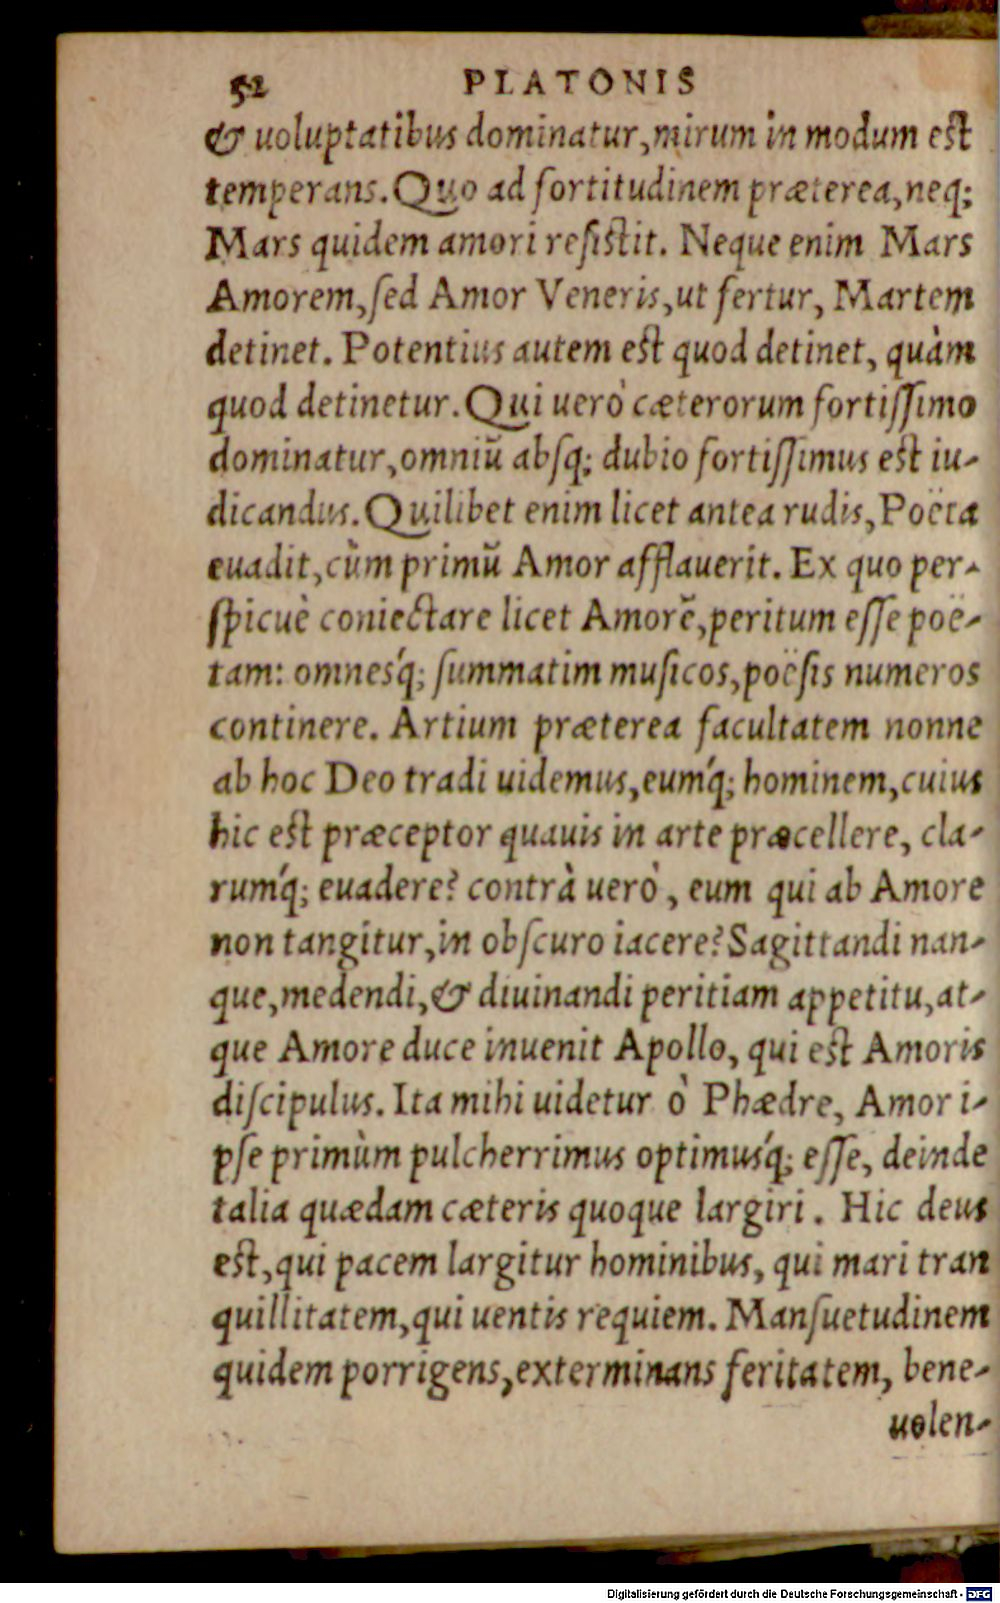 52 PLATONIS
& uoluptatibus dominatur, mirum in modum est
temperans. Quo ad fortitudinem præterea, neq;
Mars quidem amori resistit. Neque enim Mars
Amorem, sed Amor Veneris, ut fertur, Martem
detinet. Potentius autem est quod detinet, quàm
quod detinetur. Qui uerò cæterorum fortissimo
dominatur, omniũ absq; dubio fortissimus est iu-
dicandus. Quilibet enim licet antea rudis, Poëta
euadit, cùm primũ Amor afflauerit. Ex quo per-
spicuè coniectare licet Amorẽ, peritum esse poë-
tam: omnesq́; summatim musicos, poësis numeros
continere. Artium præterea facultatem nonne
ab hoc Deo tradi uidemus, eumq́; hominem, cuius
hic est præceptor quauis in arte præcellere, cla-
rumq́; euadere? contrà uerò, eum qui ab Amore
non tangitur, in obscuro iacere? Sagittandi nan-
que, medendi, & diuinandi peritiam appetitu, at-
que Amore duce inuenit Apollo, qui est Amoris
discipulus. Ita mihi uidetur ò Phædre, Amor i-
pse primùm pulcherrimus optimusq́; esse, deinde
talia quædam cæteris quoque largiri. Hic deus
est, qui pacem largitur hominibus, qui mari tran
quillitatem, qui uentis requiem. Mansuetudinem
quidem porrigens, exterminans feritatem, bene-
uolen-
Digitalisierung gefördert durch die Deutsche Forschungsgemeinschaft - DFG